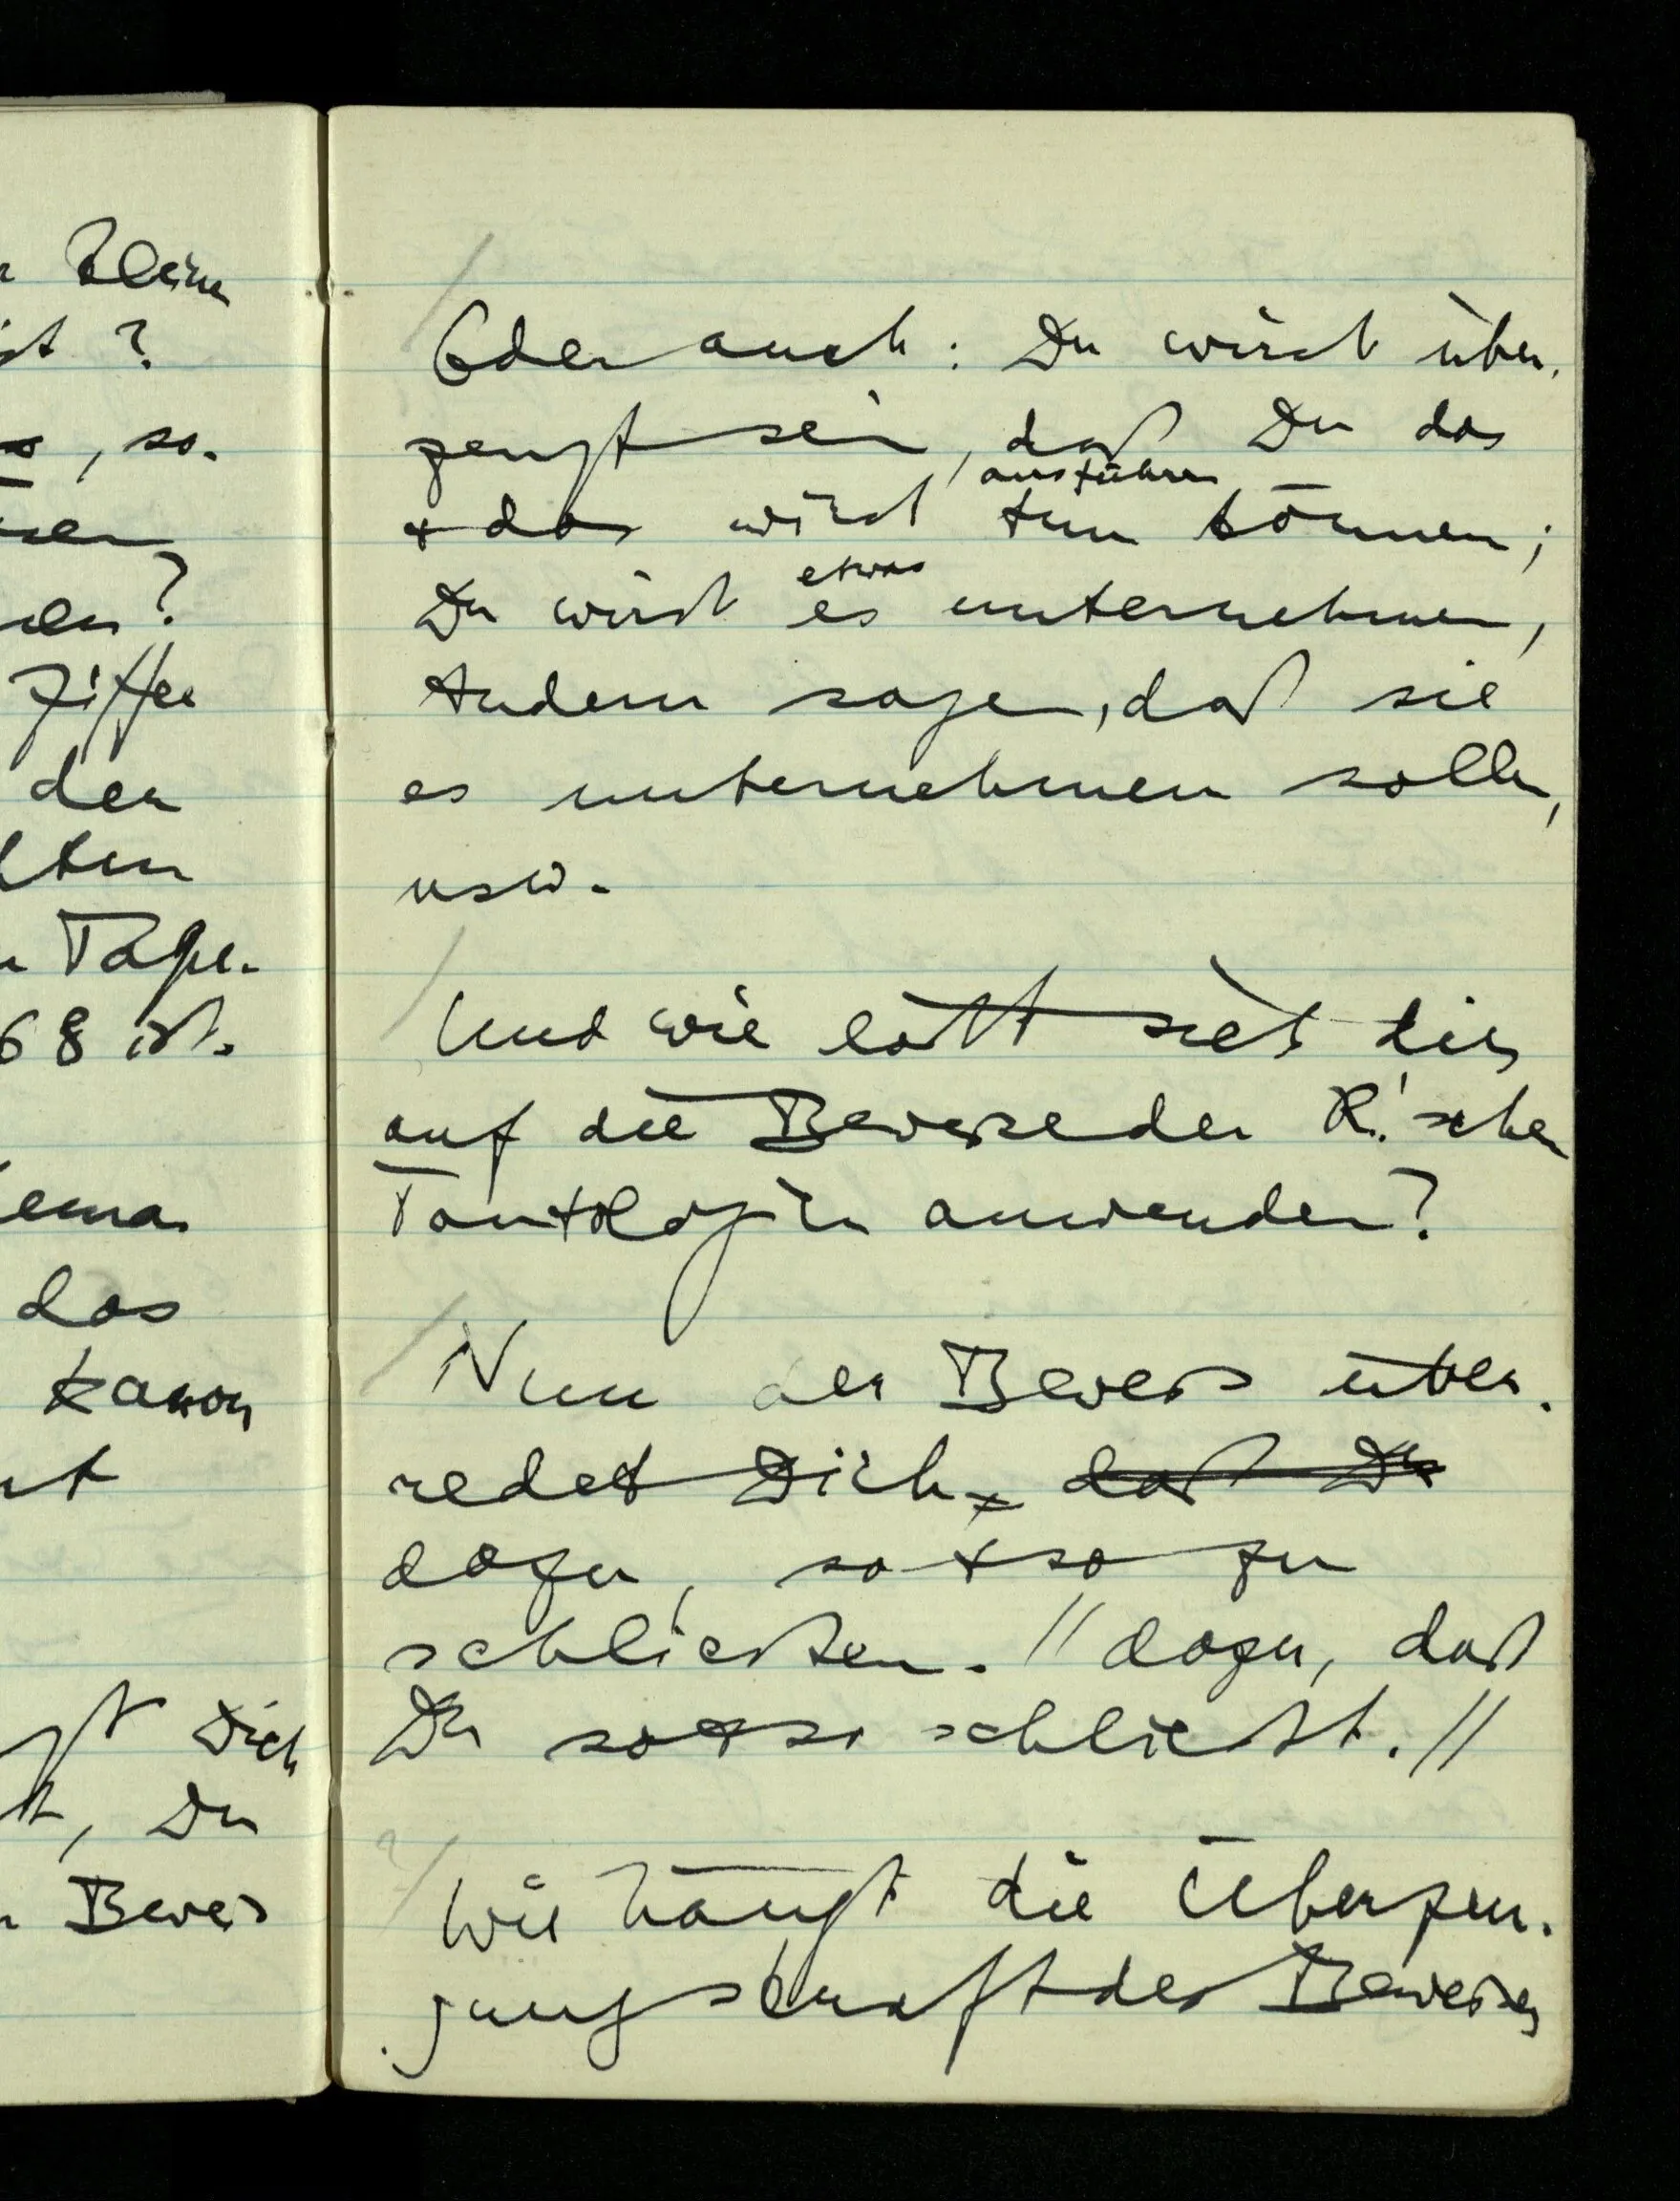 Kleine
ist ?
, so-
?
Ziffer
der
Tafel-
68 ist.
das
kannon
Dich
, Du
Beweis
Oder auch : Du wirst über-
zeugt sein, daß Du das
ausführen
+ das wirst tun können;
etwas
Du wirst es unternehmen,
Andern sagen, daß sie
es unternehmen sollen,
usw.
Und wie läßt sich dies
auf die Beweise der R.'schen
Tautologien anwenden?
Nun der Beweis über-
redet Dich, daß Du
dazu, so + so zu
schließen. // dazu, daß
Du so + so schließt. //
Wie hängt die Überzeu-
gungskraft des Beweises